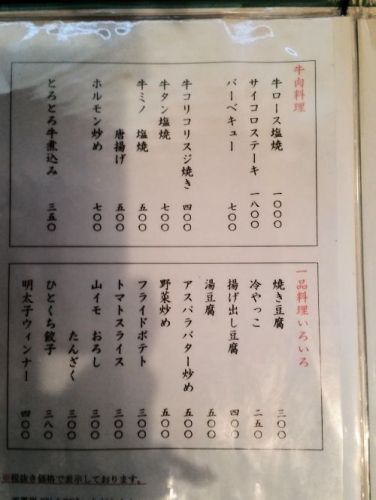 牛肉料理
牛ロース塩焼 一〇〇〇
サイコロステーキ 一八〇〇
バーベキュー 七〇〇
牛コリコリスジ焼き 四〇〇
牛タン塩焼 七〇〇
牛ミノ 塩焼 五〇〇
唐揚げ 五〇〇
ホルモン炒め 七〇〇
とろとろ牛煮込み 三五〇
一品料理いろいろ
焼き豆腐 三〇〇
冷やっこ 二五〇
揚げ出し豆腐 四〇〇
湯豆腐 五〇〇
アスパラバター炒め 五〇〇
野菜炒め 五〇〇
フライドポテト 三〇〇
トマトスライス 三〇〇
山イモ おろし 三〇〇
たんざく 三〇〇
ひとくち餃子 三八〇
明太子ウィンナー 四〇〇
※税抜き価格で表示しております。